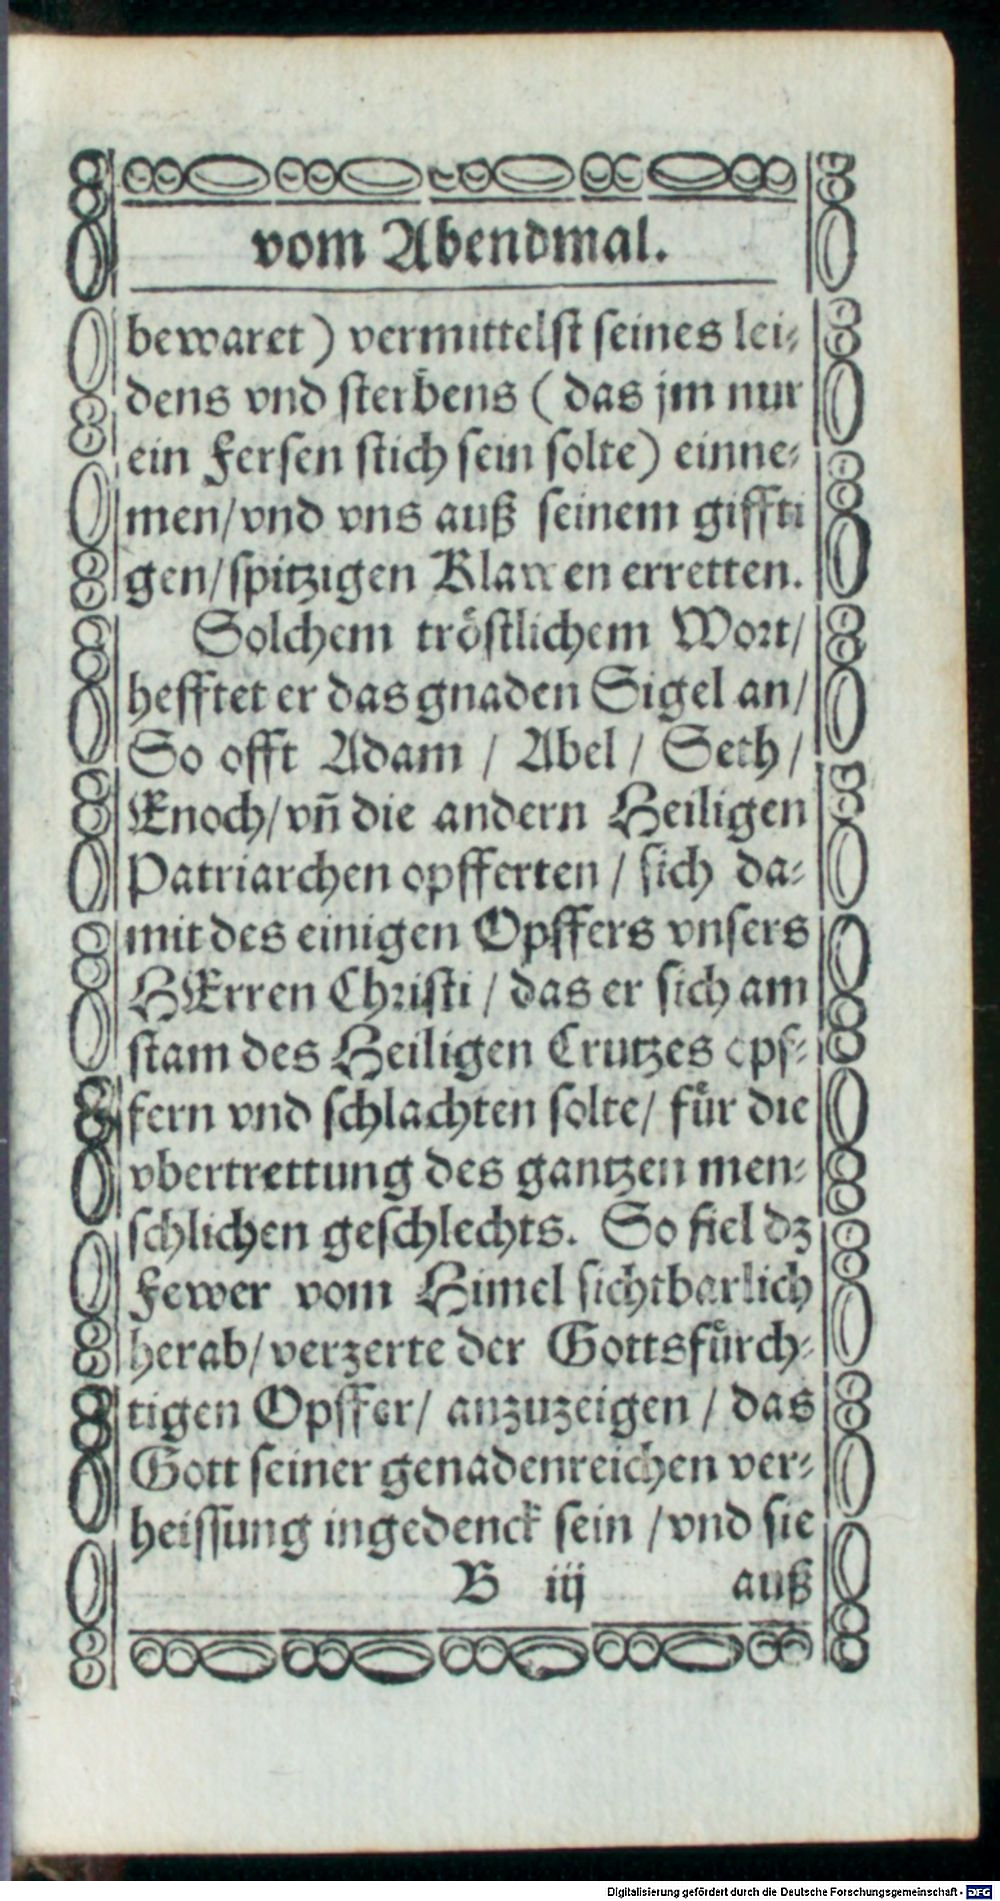 vom Abendmal.
bewaret) vermittelst seines lei-
dens vnd sterbens (das jm nur
ein Fersen stich sein solte) einne-
men/vnd vns auß seinem giffti
gen/spitzigen Klawen erretten.
Solchem tröstlichem Wort/
hefftet er das gnaden Sigel an/
So offt Adam / Abel / Seth /
Enoch/vñ die andern Heiligen
Patriarchen opfferten / sich da-
mit des einigen Opffers vnsers
HErren Christi / das er sich am
stam des Heiligen Crutzes opf-
fern vnd schlachten solte/ fuͤr die
vbertrettung des gantzen men-
schlichen geschlechts. So fiel dz
Fewer vom Himel sichtbarlich
herab/verzerte der Gottsfuͤrch-
tigen Opffer/ anzuzeigen / das
Gott seiner genadenreichen ver-
heissung ingedenck sein /vnd sie
B iij auß
Digitalisierung gefördert durch die Deutsche Forschungsgemeinschaft - DFG